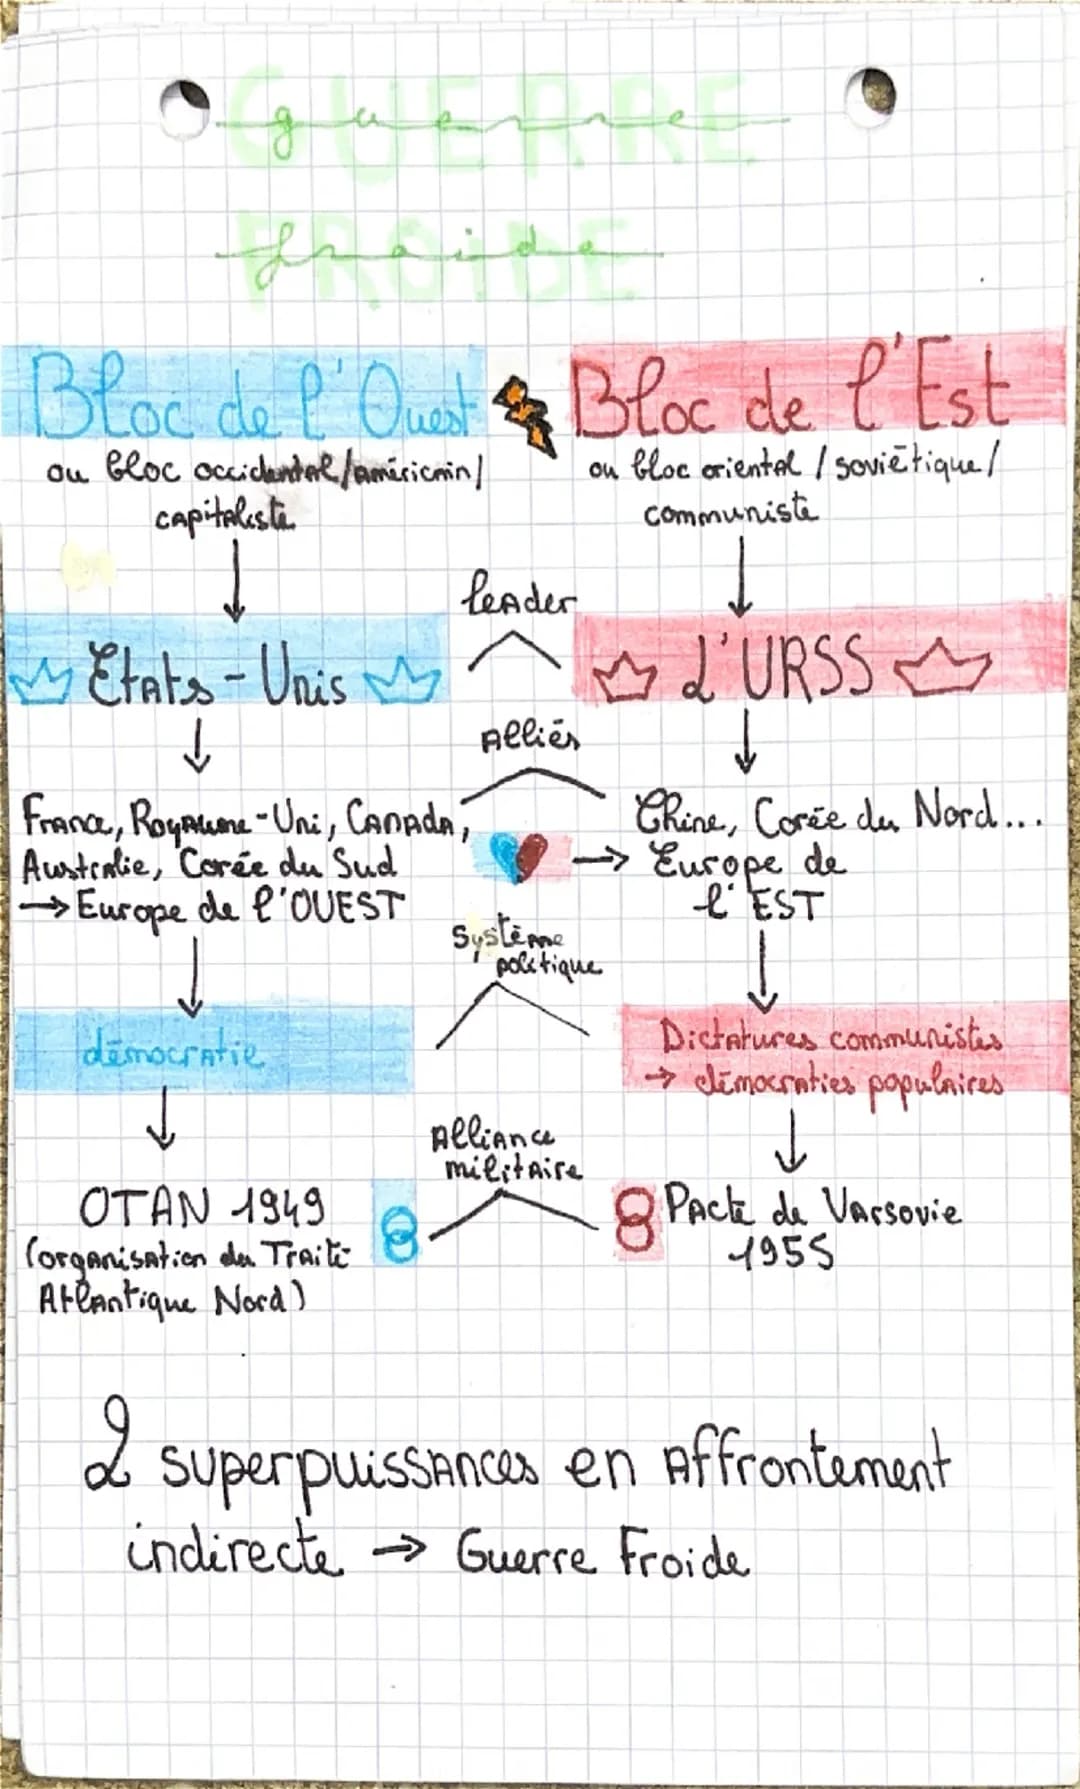 GUERRE
guerre
FROIDE
froide
Bloc de l'Ouest
ou bloc occidental/américain/
capitaliste
Bloc de l'Est
ou bloc oriental / soviétique/
communiste
leader
Etats-Unis
L'URSS
Alliés
France, Royaume-Uni, Canada,
Australie, Corée du Sud
→ Europe de l'OUEST
Chine, Corée du Nord...
→ Europe de
l'EST
Système
politique
démocratie
Dictatures communistes
→ démocraties populaires
Alliance
militaire
OTAN 1949
(organisation du Traité
Atlantique Nord)
Pacte de Varsovie
1955
2 superpuissances en affrontement
indirecte → Guerre Froide